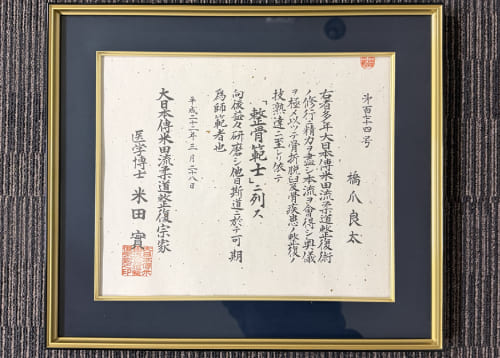 第百十四号
橋爪良太
右者多年大日本傳米田流柔道整復術
ノ修行ニ精力ヲ盡シ本流ヲ會得シ奥儀
ヲ極メ以ッテ骨折脱臼及骨疾患ノ整復ノ
技熟達ニ至レリ依テ
「整骨範士」ニ列ス
向後益々研磨シ他日斯道ニ於テ可期
為師範者也
平成二十二年三月二八日
大日本傳米田流柔道整復宗家
医学博士 米田實